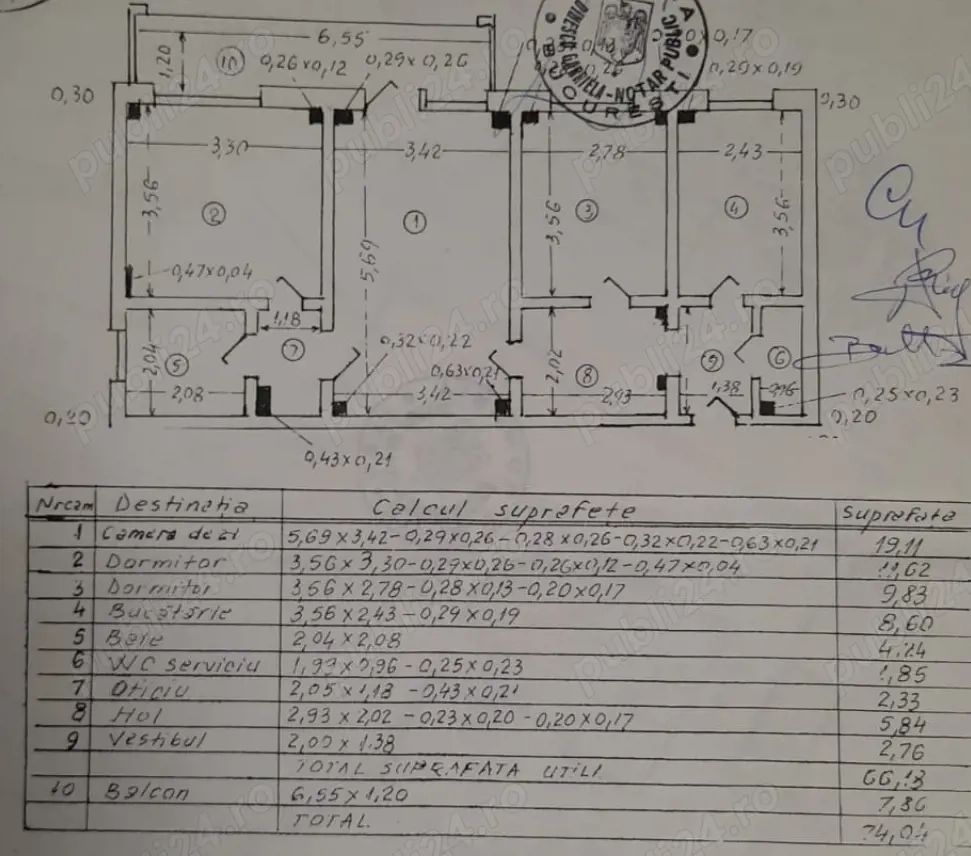 6,55
1,20
10
0,26x0,12
0,29x0,26
0,17
0,29x0,19
NOTAR PUBLIC
0,30
0,30
3,30
3,42
2,78
2,43
3,56
2
1
3
4
3,56
3,56
5,69
0,47x0,04
1,18
7
0,32x0,22
2,04
5
0,63x0,21
2,02
8
9
6
2,08
3,42
2,93
1,38
0,96
0,25x0,23
0,20
0,20
0,43x0,21
Nr cam Destinația Calcul suprafețe Suprafata
1 Camera de zi 5,69x3,42-0,29x0,26-0,28x0,26-0,32x0,22-0,63x0,21 19,11
2 Dormitor 3,56x3,30-0,29x0,26-0,26x0,12-0,47x0,04 11,62
3 Dormitor 3,56x2,78-0,28x0,13-0,20x0,17 9,83
4 Bucătărie 3,56x2,43-0,29x0,19 8,60
5 Baie 2,04x2,08 4,24
6 WC serviciu 1,99x0,96-0,25x0,23 1,85
7 Oficiu 2,05x1,18-0,43x0,21 2,33
8 Hol 2,93x2,02-0,23x0,20-0,20x0,17 5,84
9 Vestibul 2,00x1,38 2,76
TOTAL SUPRAFATA UTILI 66,18
10 Balcon 6,55x1,20 7,86
TOTAL 74,04
publi24.ro